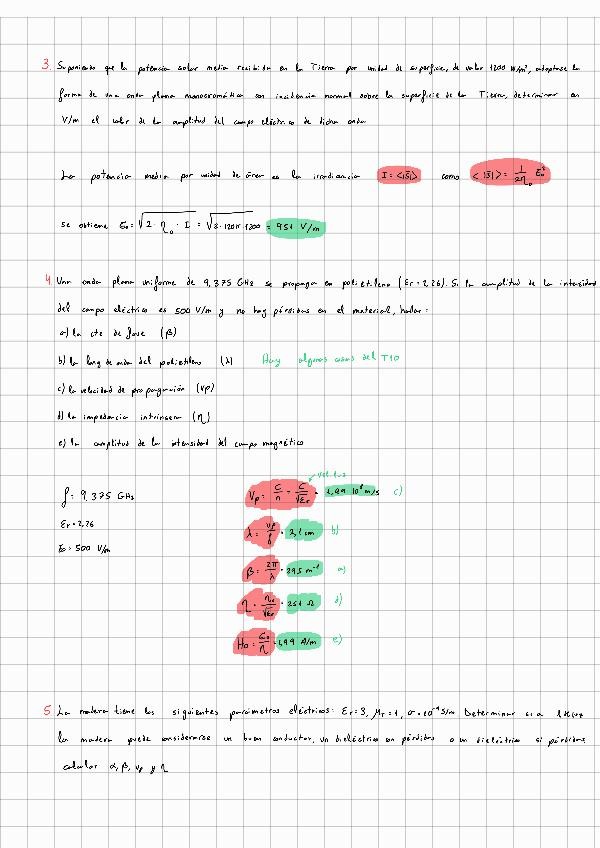 3. Suponiendo que la potencia solar media recibida en la Tierra por unidad de superficie, de valor 1200 W/m², adoptase la
forma de una onda plana monocromática con incidencia normal sobre la superficie de la Tierra, determinar en
V/m el valor de la amplitud del campo eléctrico de dicha onda
La potencia media por unidad de área es la irradiancia I = <|S|> como <|S|> = 1/2η₀ E₀²
se obtiene E₀ = √2·η₀·I = √2·120π·1200 = 951 V/m
4. Una onda plana uniforme de 9,375 GHz se propaga en polietileno (εr = 2,26). Si la amplitud de la intensidad
del campo eléctrico es 500 V/m y no hay pérdidas en el material, hallar:
a) la cte de fase (β)
b) la long de onda del polietileno (λ) Hay algunas cosas del T10
c) la velocidad de propagación (vp)
d) la impedancia intrínseca (η)
e) la amplitud de la intensidad del campo magnético
f = 9,375 GHz
Vp = C/n = C/√εr = 1,99 10⁸ m/s c)
εr = 2,26
λ = vp/f = 2,1 cm b)
E₀ = 500 V/m
β = 2π/λ = 295 m⁻¹ a)
η = η₀/√εr = 251 Ω d)
H₀ = E₀/η = 1,99 A/m e)
5. La madera tiene los siguientes parámetros eléctricos: εr = 3, μr = 1, σ = 10⁻⁴ S/m Determinar si a
la madera puede considerarse un buen conductor, un dieléctrico con pérdidas o un dieléctrico si pérdidas,
calcular α, β, vp y η